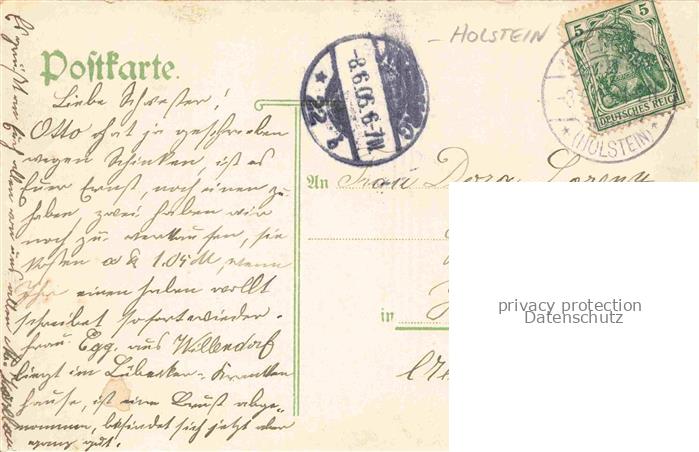 Postkarte.
Liebe Schwester!
Otto hat ja geschrieben
wegen Schinken, ist es
Euer Ernst, noch einen zu
haben, zwei haben wir
noch zu verkaufen, sie
kosten a ℔ 1.05 M, wenn
Ihr einen haben wollt
schreibet sofort wieder.
Frau Egg. aus Willendorf
liegt im Lübecker-Kranken
hause, ist eine Brust abge-
nommen, befindet sich jetzt aber
ganz gut.
-8.6.06.6-7N.
* 22 b
- HOLSTEIN
5 5
DEUTSCHES REICH
* (HOLSTEIN) *
An Frau Dora Lorenz
in
privacy protection
Datenschutz